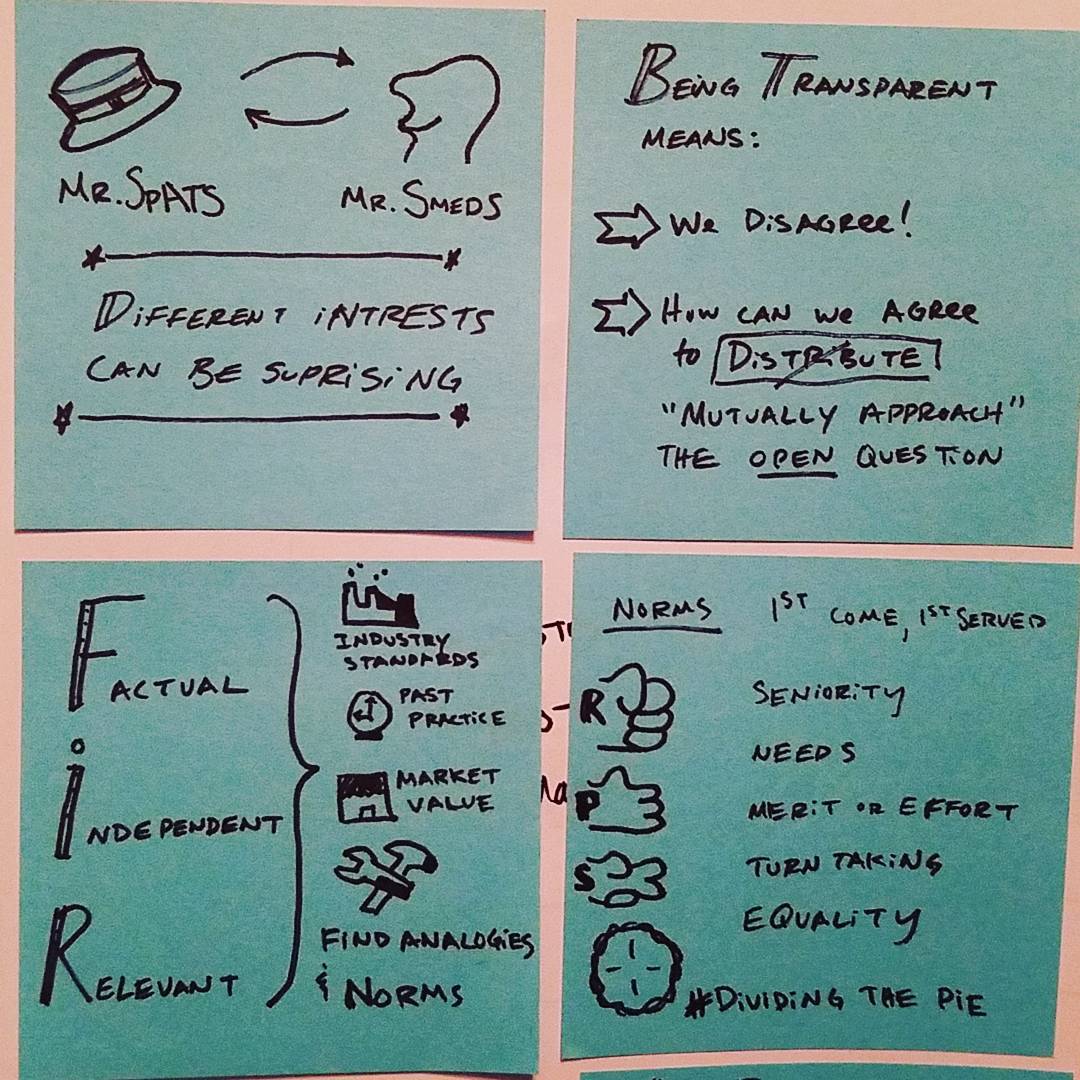 Mr. Spats
Mr. Smeds
Different intrests
can be suprising
Being Transparent
means:
We Disagree!
How can we agree
to Distribute
"Mutually approach"
the open question
Factual
Independent
Relevant
Industry
Standards
Past
Practice
Market
Value
Find analogies
& Norms
Norms
1st come, 1st served
Seniority
Needs
Merit or effort
Turn taking
Equality
R
P
S
#Dividing the pie